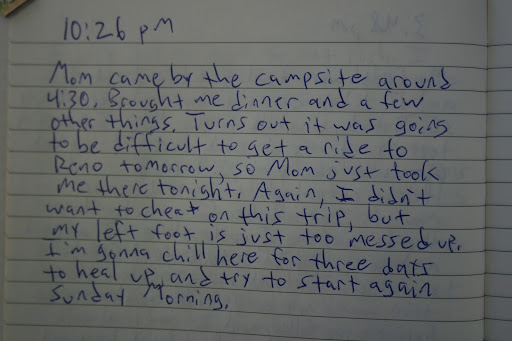 10:26 pM
Mom came by the campsite around
4:30. Brought me dinner and a few
other things. Turns out it was going
to be difficult to get a ride to
Reno tomorrow, so Mom just took
me there tonight. Again, I didn't
want to cheat on this trip, but
my left foot is just too messed up.
I'm gonna chill here for three days
to heal up and try to start again
Sunday Morning.